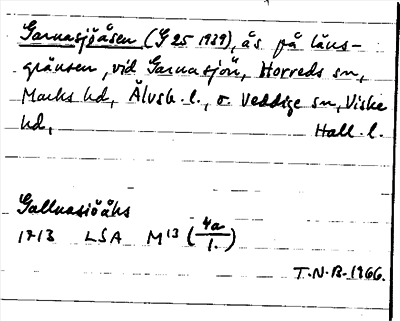 Garnasjöåsen (G 25 1939), ås på läns-
gränsen, vid Garnasjön, Horreds sn,
Marks hd, Älvsb. l., o. Veddige sn, Viske
hd, Hall. l.
Gallnasiöåhs
1713 LSA M¹³ (4a/1.)
T.N.B. 1966.